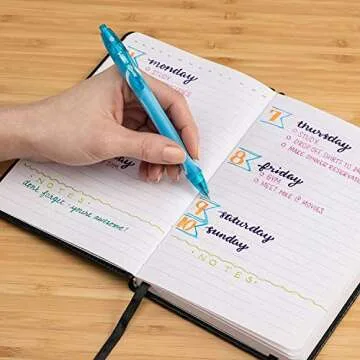 monday
STUDY
NOTES:
don't forget - you're awesome!
7
thursday
STUDY
MAKE DINNER RESERVATIONS
8
friday
GYM
MEET MIKE @ MOVIES
9
saturday
10
sunday
NOTES: